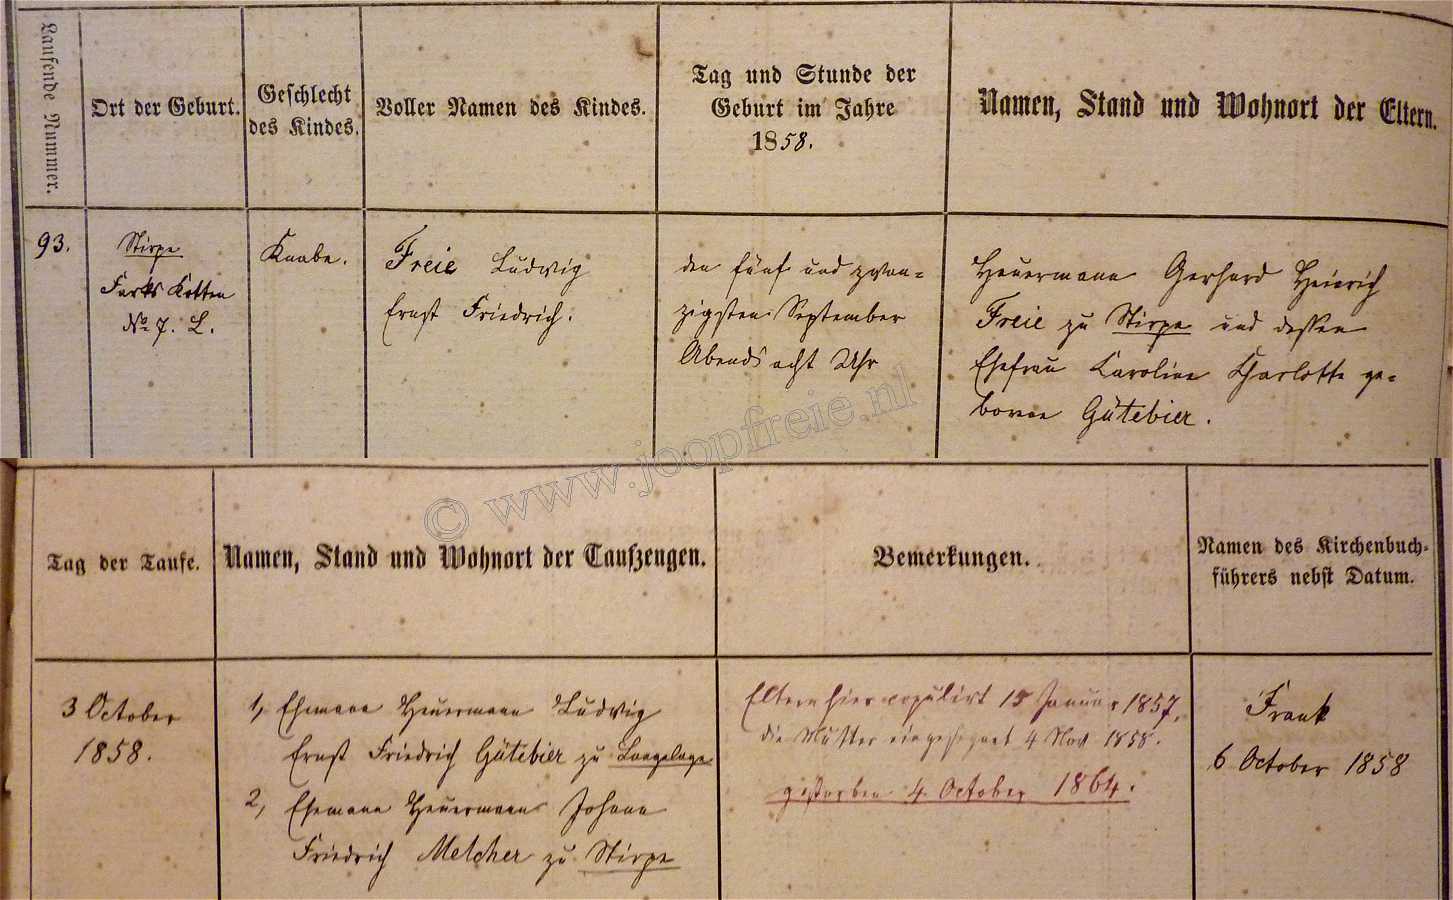 Laufende Nummer.
Ort der Geburt.
Geschlecht
des Kindes.
Voller Namen des Kindes.
Tag und Stunde der
Geburt im Jahre
1858.
Namen, Stand und Wohnort der Eltern.
93.
Stirpe
Farks Kotten
No 7. L.
Knabe.
Freie Ludwig
Ernst Friedrich.
den fünf und zwan-
zigsten September
Abends acht Uhr
Heuermann Gerhard Heinrich
Freie zu Stirpe und dessen
Ehefrau Caroline Charlotte ge-
borne Gütebier.
© www.joopfreie.nl
Tag der Taufe.
Namen, Stand und Wohnort der Taufzeugen.
Bemerkungen.
Namen des Kirchenbuch-
führers nebst Datum.
3 October
1858.
1, Ehemann Heuermann Ludwig
Ernst Friedrich Gütebier zu Langelage
2, Ehemann Heuermann Johann
Friedrich Melcher zu Stirpe
Eltern hier copulirt 15 Januar 1857.
die Mutter eingesegnet 4 Nov 1858.
gestorben 4. October 1864.
Frank
6 October 1858